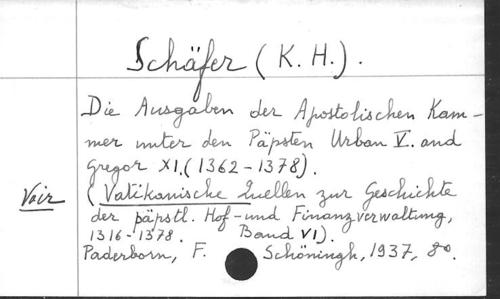 Schäfer (K. H.).
Die Ausgaben der Apostolischen Kam-
mer unter den Päpsten Urban V. and
Gregor XI. (1362-1378).
Voir (Vatikanische Quellen zur Geschichte
der päpstl. Hof- und Finanzverwaltung,
1316-1378. Band VI).
Paderborn, F. Schöningh, 1937, 8o.